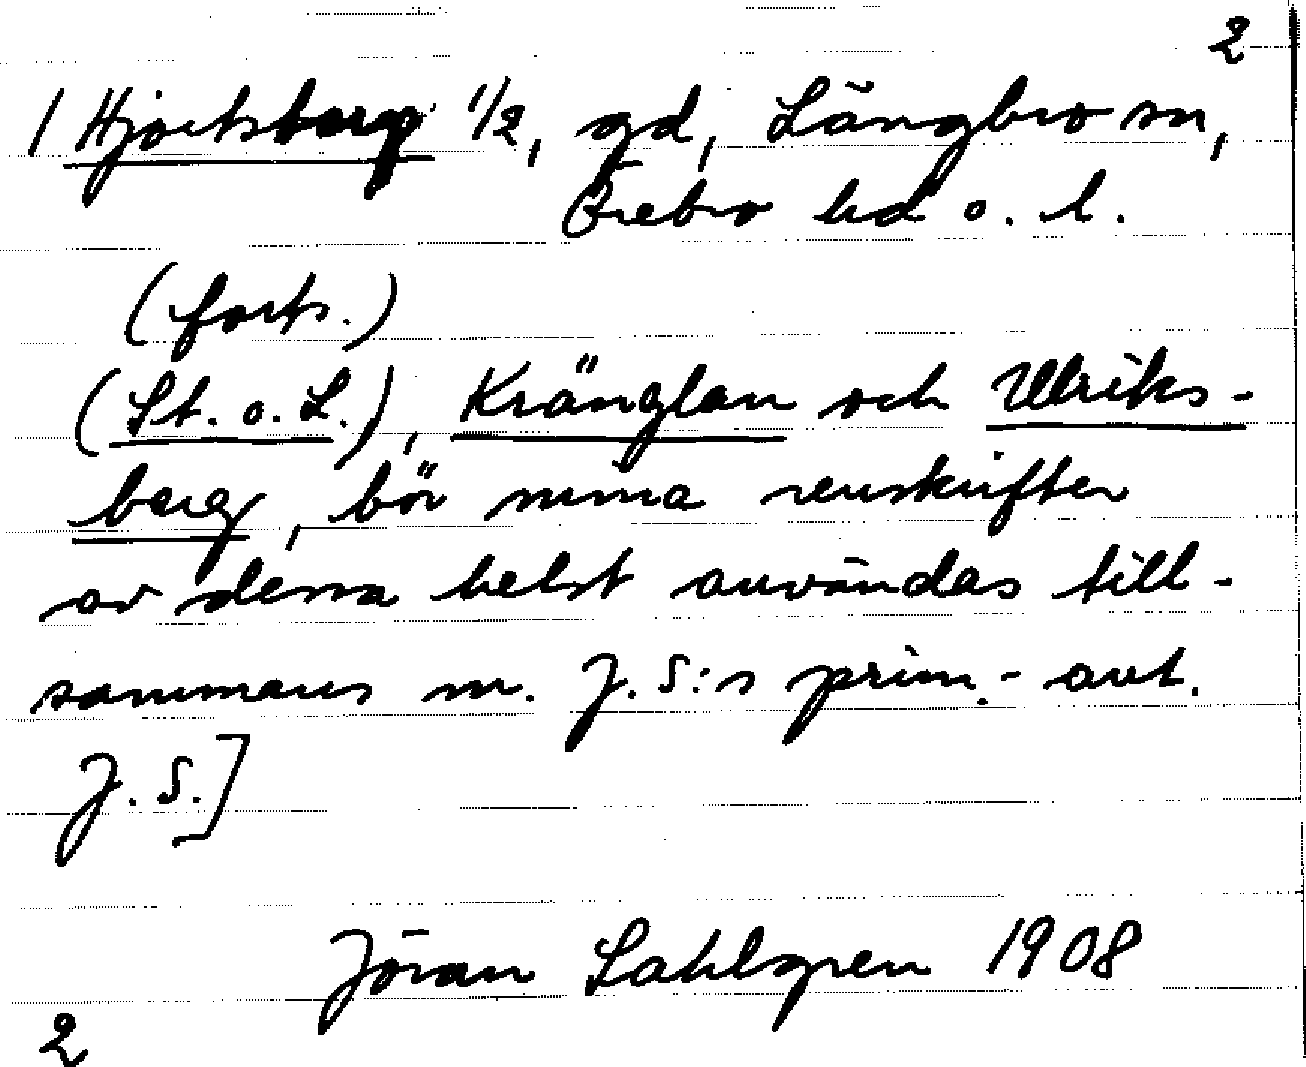 2
/ Hjortsberg 1/2, gd, Längbro sn,
Örebro hd o. l.
(forts.)
(St. o. L.), Kränglan och Ulriks-
berg, bör mina renskrifter
av dessa helst användas till-
sammans m. J. S:s prim.- ant.
J. S.]
Jöran Sahlgren 1908
2